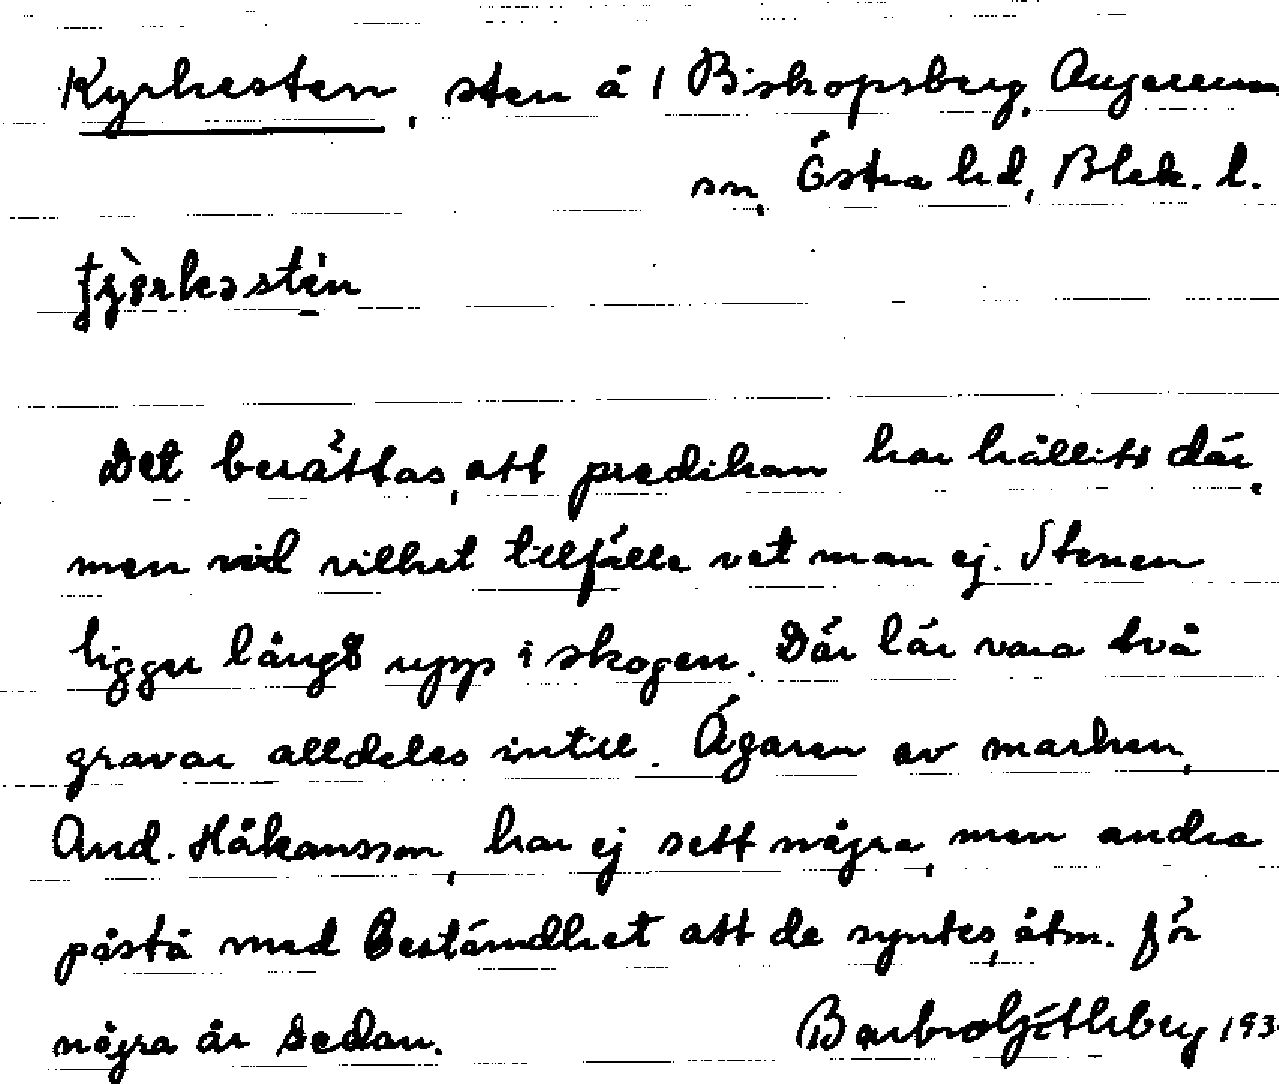 Kyrkesten, sten å 1 Bishopsberg, Augerum
sn, Östra hd, Blek. l.
Det berättas, att predikan har hållits där,
men vid vilket tillfälle vet man ej. Stenen
ligger långt upp i skogen. Där lär vara två
gravar alldeles intill. Ägaren av marken,
And. Håkansson, har ej sett några, men andra
påstå med bestämdhet att de syntes, åtm. för
några år sedan.
Barbro Götlberg 193